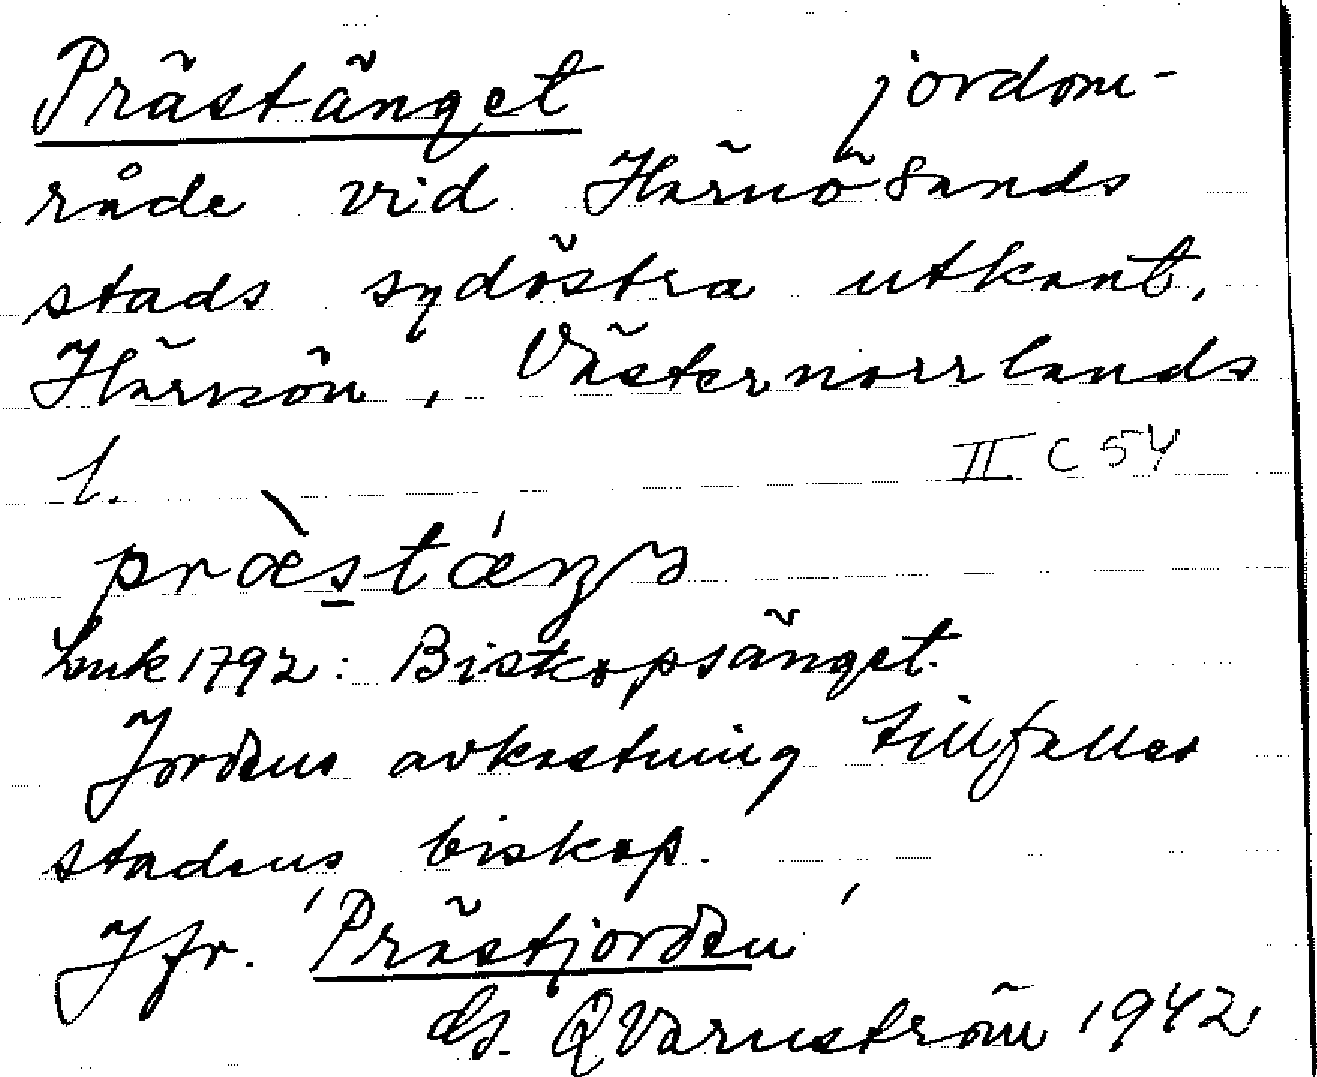 Prästänget jordom-
råde vid Härnösands
stads sydöstra utkant,
Härnön, Västernorrlands
l. II C 54
præ̀stǽŋə
Luk 1792: Biskopsänget.
Jordens avkastning tillfaller
stadens biskop.
Jfr. 'Prästjorden'
ds. QVarnström 1942